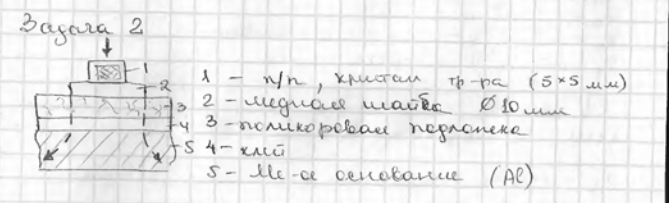 Задача 2
1
2
3
4
5
1 - п/п, кристалл тр-ра (5×5 мм)
2 - медная шайба Ø10 мм
3 - поликоровая подложка
4 - клей
5 - Ме-ое основание (Al)